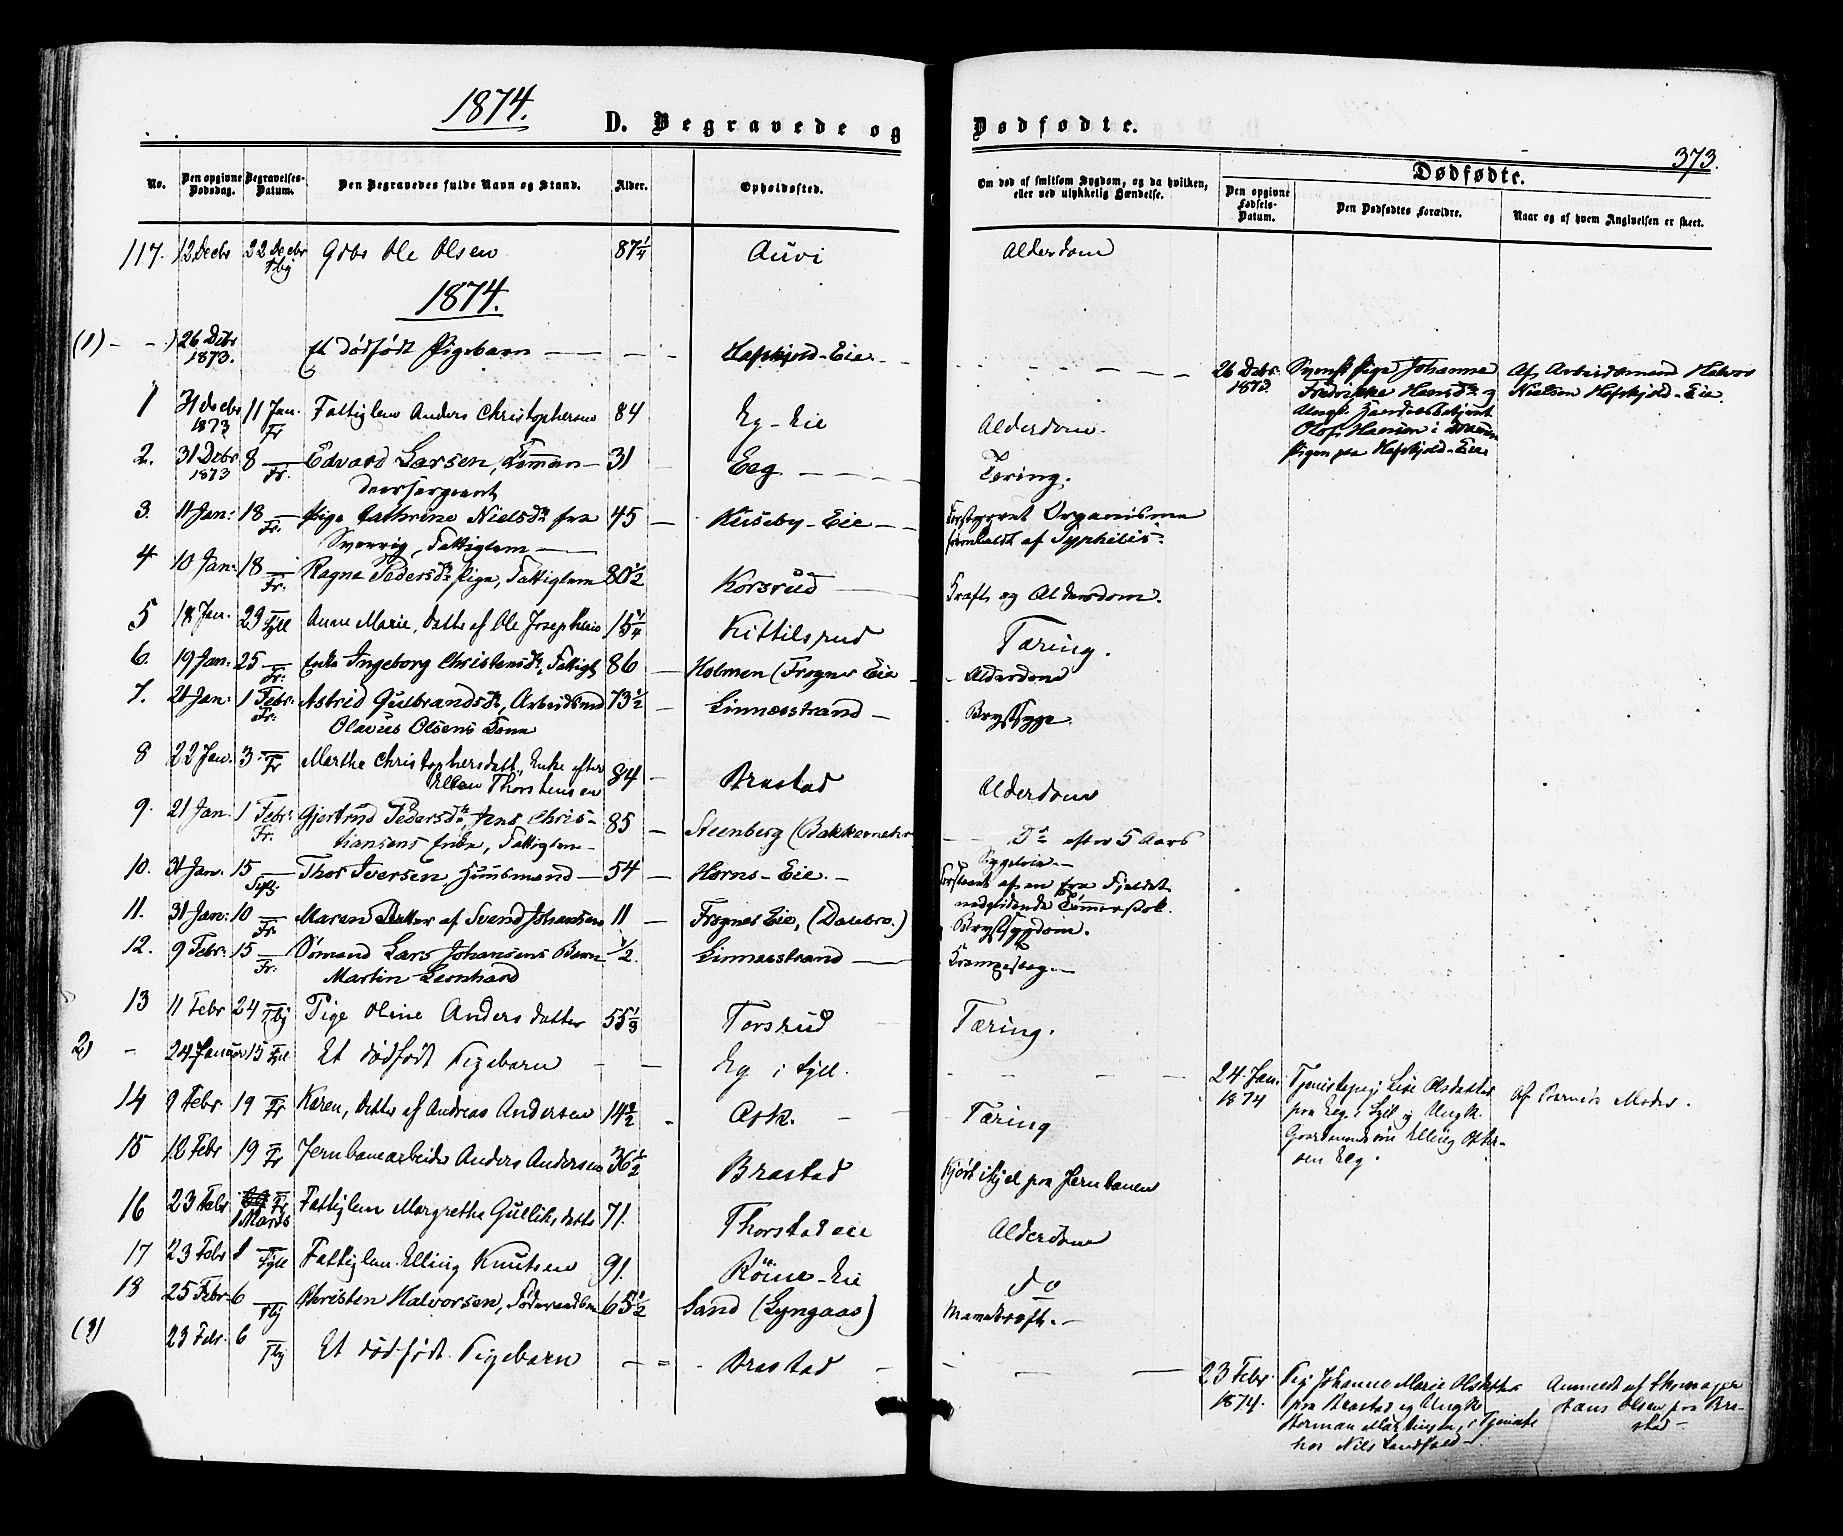 1874.
D. Begravede og Dødfødte.
373.
No.
Den opgivne Dødsdag.
Begravelses-Datum.
Den Begravedes fulde Navn og Stand.
Alder.
Opholdssted.
Om død af smitsom Sygdom, og da hvilken, eller ved ulykkelig Hændelse.
Dødfødte.
Den opgivne Fødsels-Datum.
Den Dødfødtes Forældre.
Naar og af hvem Angivelsen er skeet.
117. 12 Decbr 22 Decbr Tbj Gbr Ole Olsen 87 1/4 Auvi Alderdom
1874.
(1) - - 26 Debr Et dødfødt Pigebarn - - - Hafskjold-Eie -
1873.
26 Debr. Svensk Pige Johanne Af Arbeidsmand Halvor
1873 Fredrikke Hansdr og Nielsen Hafskjold-Eie.
Ungk. Handelsbetjent
Olof Hansen i
Pigen paa Hafskjold-Eie
1 31 Decbr 11 Jan. Fattiglem Anders Christophersen 84 Eg-Eie Alderdom.
1873 Fr
2. 31 Debr 8 — Edvard Larsen, Comman- 31 — Eeg — Tæring.
1873 Fr. deersergeant
3. 11 Jan: 18 — Pige Cathrine Nielsdr fra 45 — Kuseby-Eie — Forstyrret Organisme
Fr. Sverrig, Fattiglem — af Syphilis.
4 10 Jan: 18 — Ragne Pedersdr Pige, Fattiglem 80 1/2 Korsrud — Kræft og Alderdom.
Fr.
5 18 Jan. 29 Sjll Anne Marie, Datter af Ole Josephsen 15 1/4 Kittilsrud Tæring.
6. 19 Jan: 25 — Enke Ingeborg Christensdr, Fattigl 86 — Holmen (Frogner Eie - Alderdom
Fr.
7. 21 Jan: 1 Febr: Astrid Gulbrandsdr, Arbeidsmd 73 1/2 — Linnesstrand — Brystsyge.
Fr. Olavus Olsens Kone
8 22 Jan. 3 — Marthe Christophersdatt, Enke efter 84 — Brastad Alderdom
Fr Thorstensen
9. 21 Jan. 1 Febr. Gjertrud Pedersdr, Jens Chris- 85 — Steenberg (Bakkerne — Do efter 5 Aars
Fr. tiansens Enke, Fattiglem — Sygeleie. —
10. 31 Jan. 15 — Thor Iversen Huusmand — 54 — Horns-Eie. — af en fra Fjeldet
nedglidende Tømmerstok.
11. 31 Jan: 10 — Maren Datter af Svend Johansen 11 — Frogner Eie, (Dalebro.) Brystsygdom.
Fr.
12. 9 Febr: 15 — Sømand Lars Johansens Barn 1/2. Linnesstrand — Krampeslag. —
Fr. Martin Leonhard
13 11 Febr 24 Tbj Pige Oline Andersdatter 55 1/3 Torsrud Tæring.
2) - 24 Januar 15 Sjll Et dødfødt Pigebarn — — Eg i Sjll.
24 Jan. Tjenestepige Lise Olsdatter Af Barnets Moder.
1874 paa Eeg i Sjll og Ungk.
Gaardmandssøn Elling
sen Eeg.
14 9 Febr 19 Fr Karen, Datter af Andreas Andersen 14 1/2 - Ask. - Tæring
15 12 Febr 19 Fr Jernbanearbeider Anders Andersen 36 1/2 Brastad Kjørt ihjel paa Jernbanen
16 23 Febr Fattiglem Margrethe Gulliksdatter 71. Thorstad eie Alderdom
1 Marts
17 23 Febr 1 Sjll Fattiglem Elling Knutsen 91. Röine-Eie do
18 25 Febr. 6 Tbj Christen Halvorsen, Føderaadsm 65 1/2 Sand (Lyngaas) Mavekræft. —
(3) 23 Febr. 6 Tbj Et dødfødt Pigebarn — = - Brastad -
23 Febr. Pige Johanne Marie Olsdatter Anmeldt af Skomager
1874. paa Brastad og Ungk Hans Olsen paa Bra-
Herman Martinsen, i Tjeneste stad —
hos Nils Landfald —